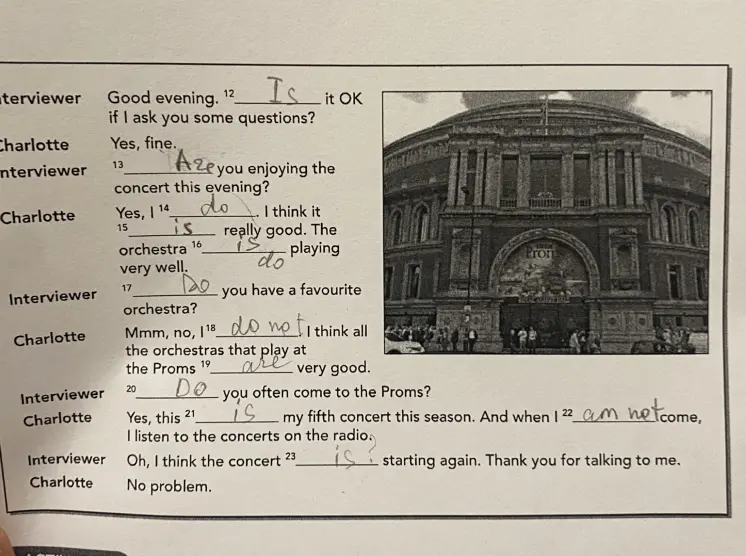 terviewer Good evening. 12 Is it OK
if I ask you some questions?
Charlotte Yes, fine.
nterviewer 13 Are you enjoying the
concert this evening?
Charlotte Yes, I 14 do. I think it
15 is really good. The
orchestra 16 is playing
very well. do
Interviewer 17 Do you have a favourite
orchestra?
Charlotte Mmm, no, I 18 do not. I think all
the orchestras that play at
the Proms 19 are very good.
Interviewer 20 Do you often come to the Proms?
Charlotte Yes, this 21 is my fifth concert this season. And when I 22 am not come,
I listen to the concerts on the radio.
Interviewer Oh, I think the concert 23 is? starting again. Thank you for talking to me.
Charlotte No problem.